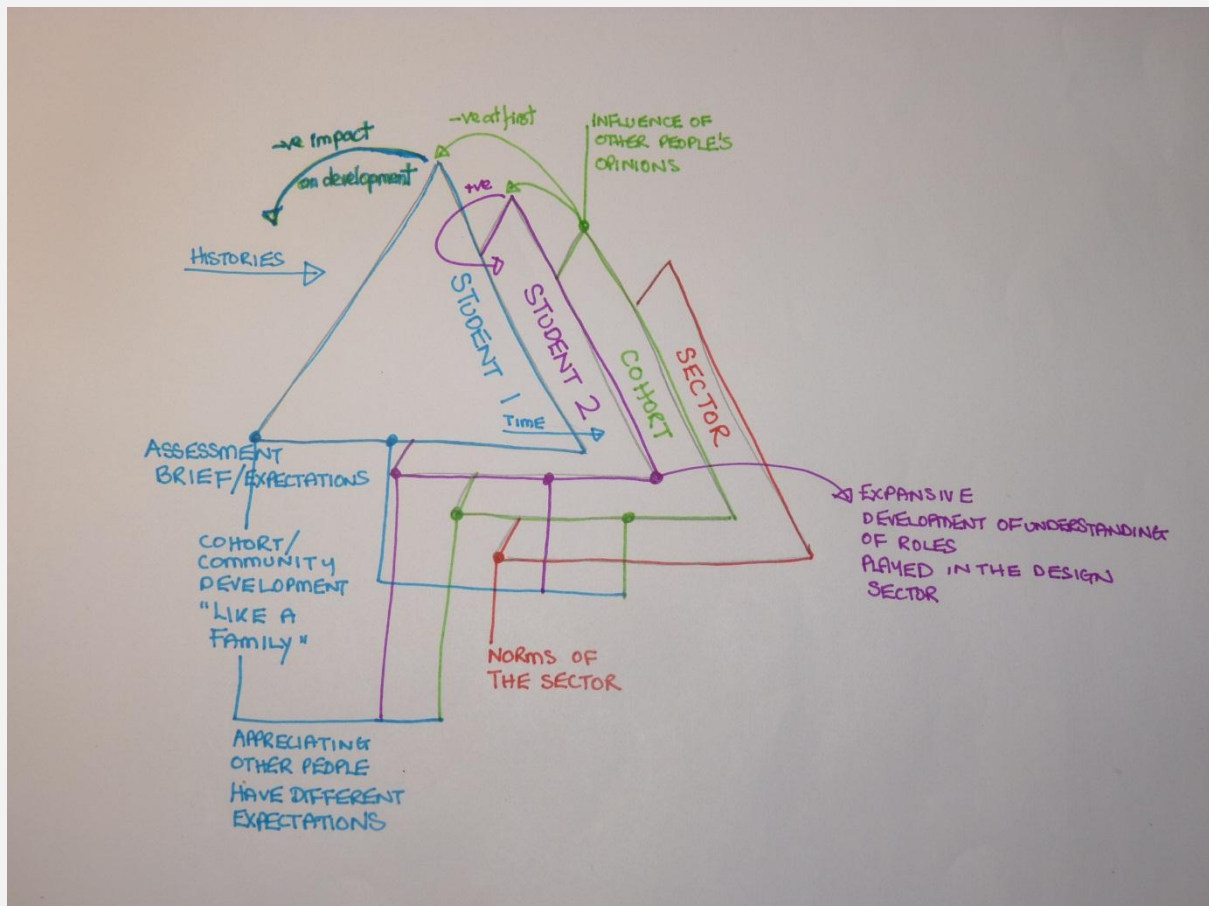 -ve at first
INFLUENCE OF
OTHER PEOPLE'S
OPINIONS
-ve impact
on development
+ve
HISTORIES
STUDENT 1
STUDENT 2
COHORT
SECTOR
TIME
ASSESSMENT
BRIEF/EXPECTATIONS
COHORT/
COMMUNITY
DEVELOPMENT
"LIKE A
FAMILY"
EXPANSIVE
DEVELOPMENT OF UNDERSTANDING
OF ROLES
PLAYED IN THE DESIGN
SECTOR
NORMS OF
THE SECTOR
APPRECIATING
OTHER PEOPLE
HAVE DIFFERENT
EXPECTATIONS